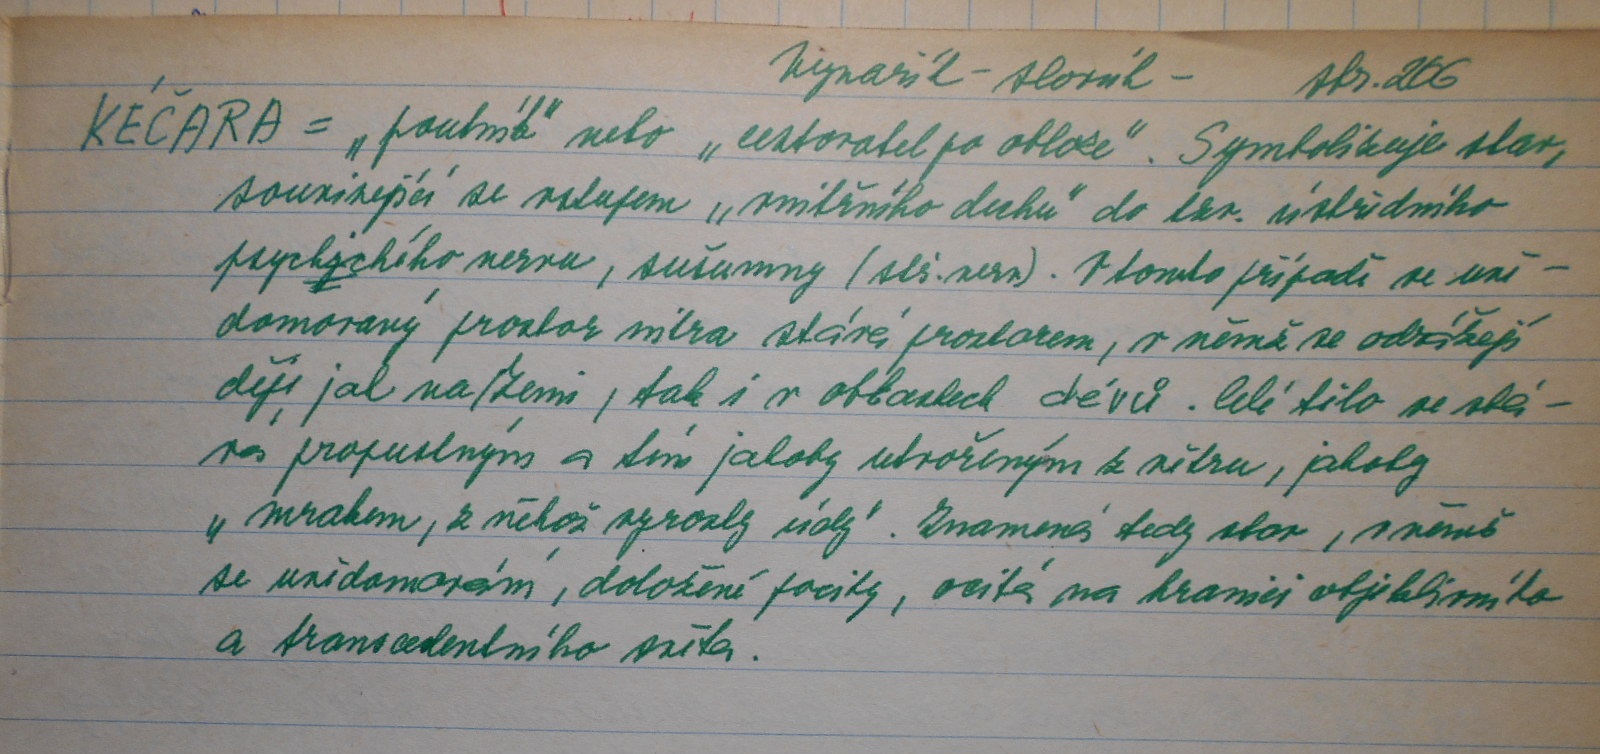 Wynařik - slovník - str. 266
KÉČARA = „poutník" nebo „cestovatel po obloze". Symbolizuje stav,
související se vstupem „vnitřního dechu" do tzv. ústředního
psychického nervu, sušumny (stř. nerv). V tomto případě se uvě-
domovaný prostor nitra stává prostorem, v němž se odrážejí
děje jak na Zemi, tak i v oblastech dévů. Celé tělo se stá-
vá propustným a tím jakoby utvořeným z větru, jakoby
„mrakem, z něhož vyrostly údy". Znamená tedy stav, v němž
se uvědomování, doložené pocity, ocitá na hranici objektivního
a transcedentního světa.